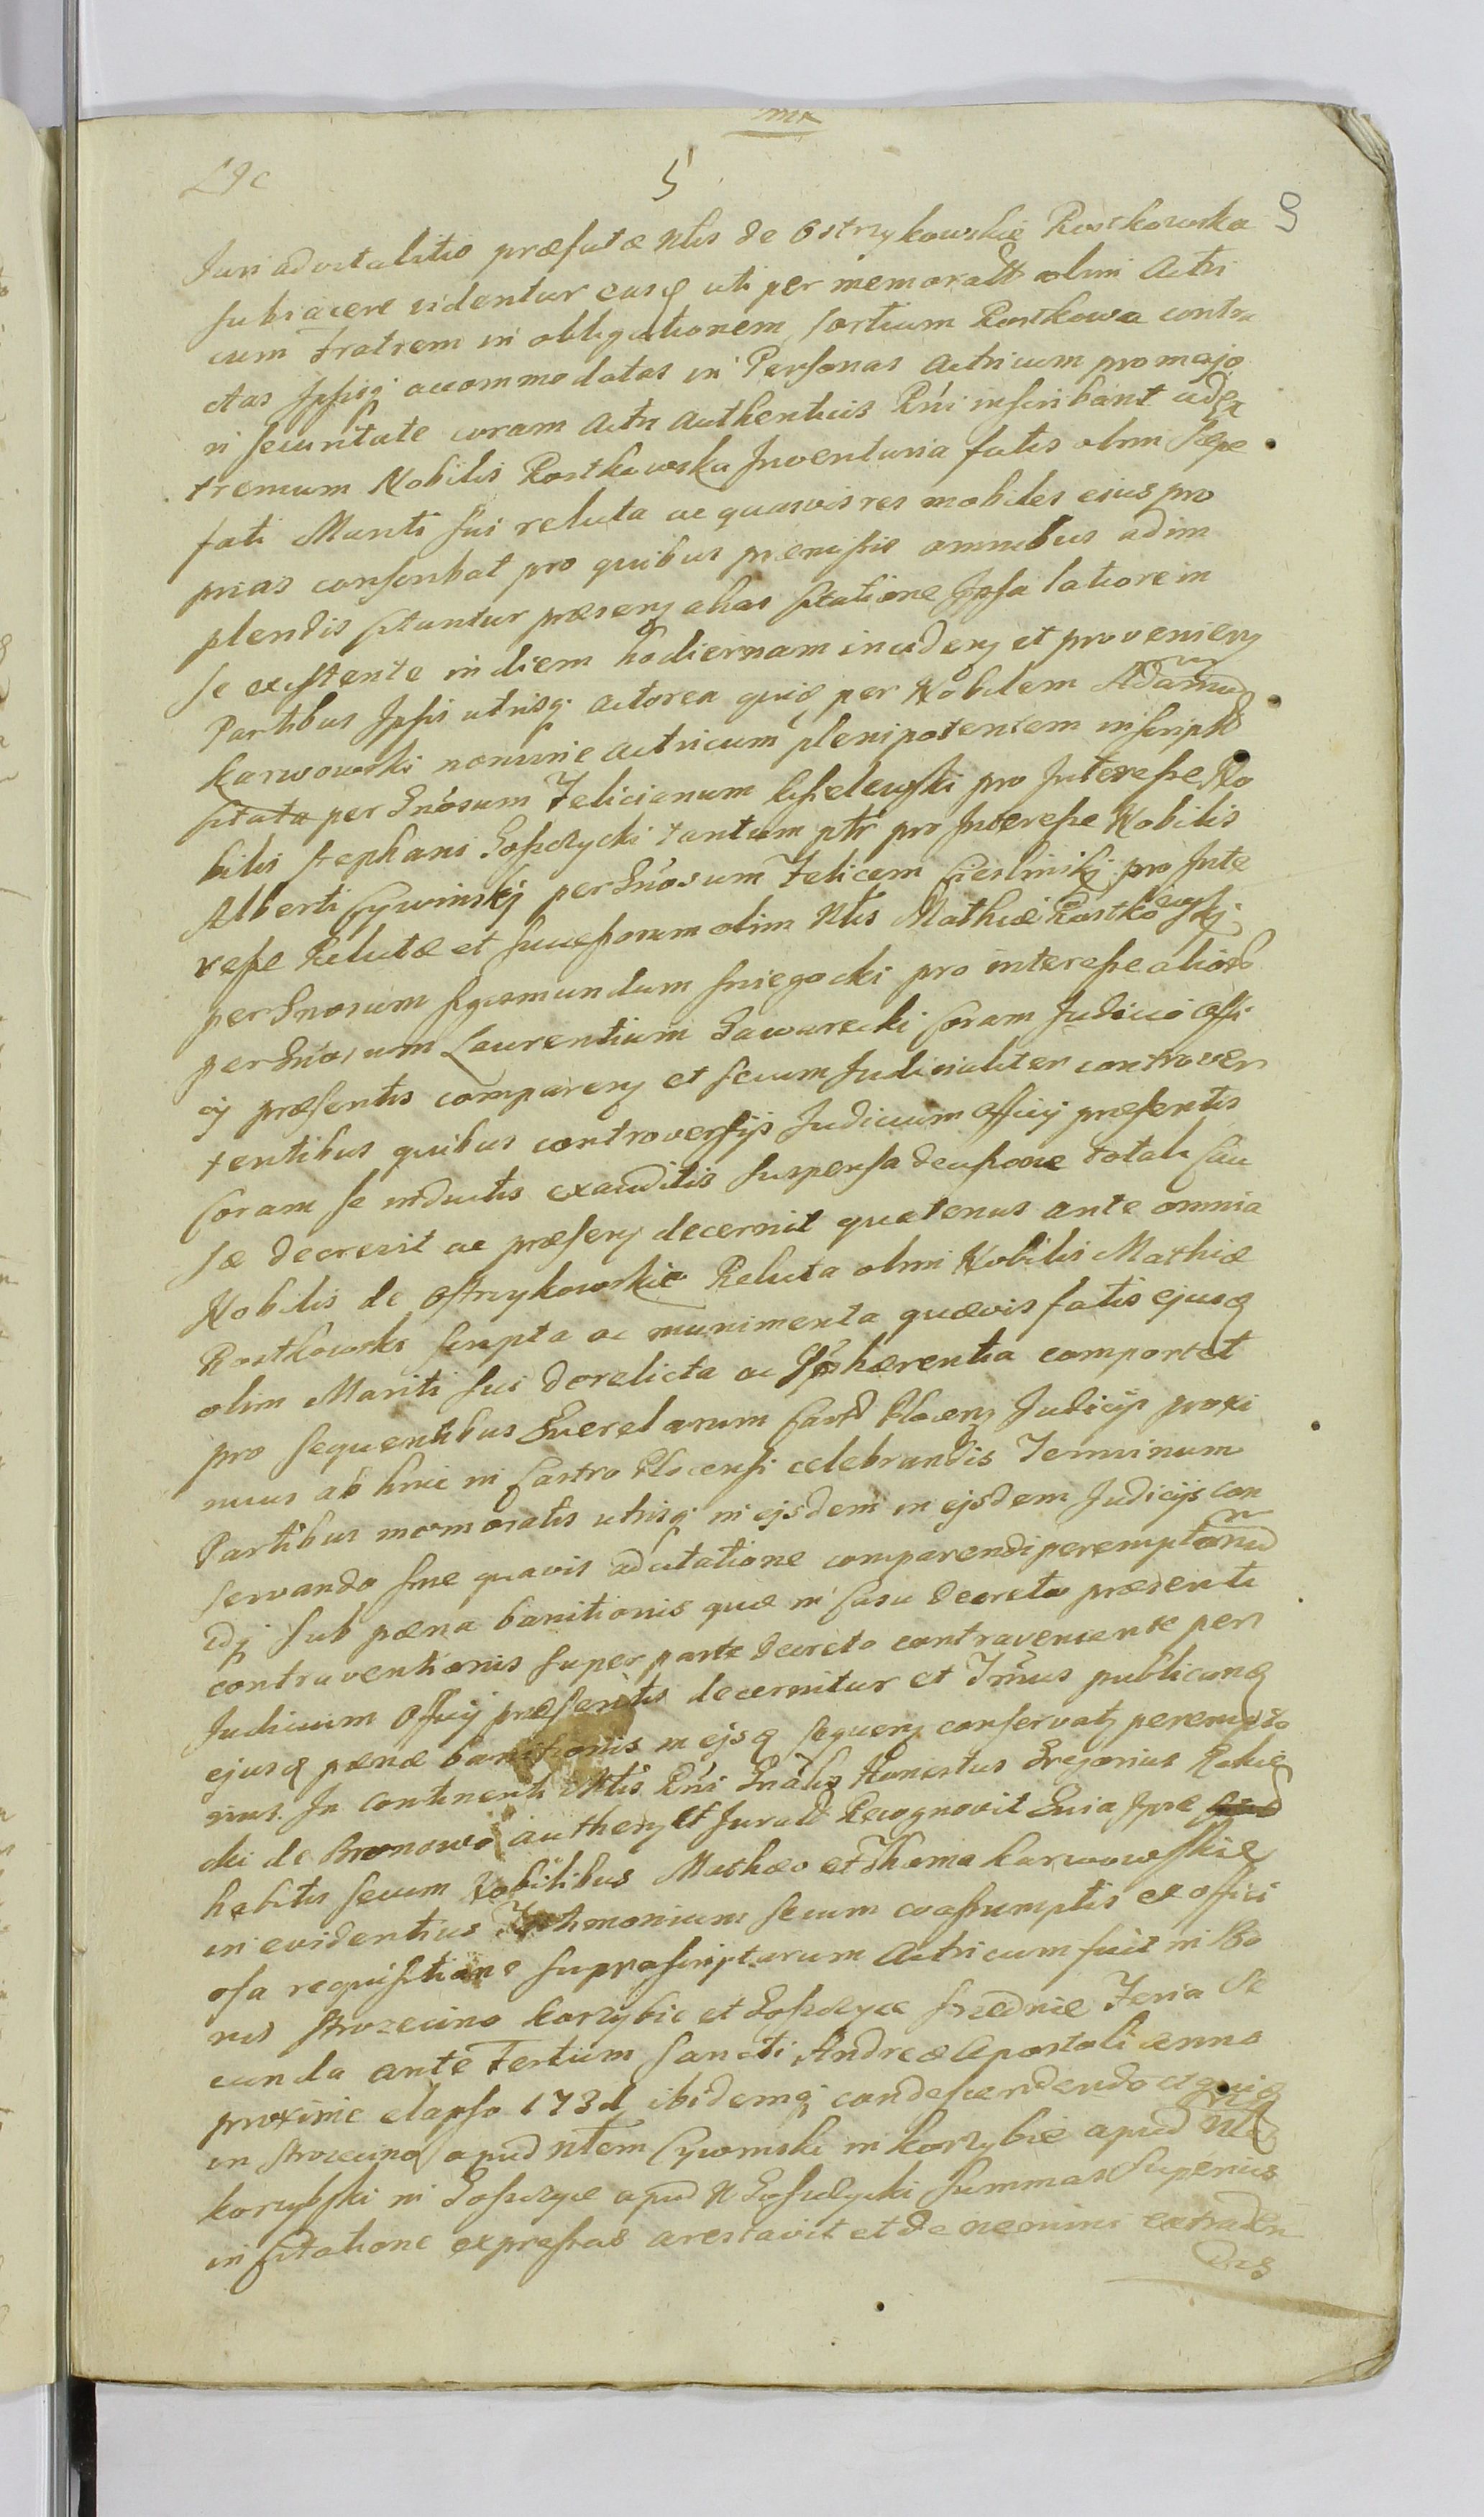 5
9
Juri advitalitio præfatæ Nlis de Ostrzykowskie Rostkowska
subiacere videntur easq uti per memoratt olim Actri
cum Fratrem in obligationem sortium Rostkowa contra
ctas Ipsisq accommodatas in Personas Actricum pro majo
ri securitate coram Actis Authenticis Rni inscribant adex
tremum Nobilis Rostkowska Inventaria fatis olim sæpe
fati Mariti sui relicta ac quasvis res mobiles eius pro
prias conscribat pro quibus præmissis omnibus adim
plendis citantur præsenz alias Citatione Ipsa latiore in
se existente in diem hodiernam incidenz et provenienz
Partibus Ipsis utrisq Actorea quid per Nobilem Adamum
Karwowski nomine actricum plenipotentem inscriptt
citata per Gnosum Felicianum Cissleuski pro Interesse No
bilis Stephani Gosczycki tantum ptr pro Interesse Nobilis
Alberti Cywinskj per Gnosum Felicem Cieslinskj pro Inte
resse Relictæ et Successorum olim Nlis Mathiæ Rostkowskj
per Gnosum Sigismundum Sniegocki pro interesse aliord
per Gnosum Laurentium Gawarecki Coram Judicio Offi
cij præsentis comparenz et secum Judicialiter controver
tentibus quibus controversijs Judicium Officij præsentis
Coram se inductis exauditis suspensa decisione totali Cau
sæ decrevit ac præsenz decernit quatenus ante omnia
Nobilis de Ostrzykowskie Relicta olim Nobilis Mathiæ
Rostkowski scripta ac munimenta quævis fatis ejusq
olim Mariti sui derelicta ac Ipsi hærentia comportet
pro sequentibus Querelarum Castr Plocenz Judicijs proxi
mius ab hinc in Castro Plocensi celebrandis Terminum
Partibus memoratis utrisq in ejsdem in ejsdem Judicijs con
servando sine quavis adcitatione comparendi peremptorium
idq sub pæna banitionis quæ in Casu Decreto præsenti
contraventionis super parte Decreto contraveniente per
Judicium Officij præsentis decernitur et Trnus publicandæ
ejusq pænæ banitionis in ejsq sequenz conservatz perempto
rius. In continenti Mtis Rni Gnalis Honestus Gregorius Rakie
cki de Bronowo authenz et Juratt Recognovit Quia Ipse
habitis secum Nobilibus Mathæo et Thoma Karwowskie
in evidentius Testimonium secum coassumptis ex offici
osa requisitione suprascriptarum Actricum fuit in Bo
nis Strozecino Korzybie et Gosczyce Srzednie Feria Se
cunda ante Festum Sancti Andreæ Apostoli anno
proxime elapso 173 ibidemq condescendendo
in Strozecino apud Nlem Cywinski in Korzybie apud Nlem
Korzybski in Gosczyce apud N Gosczycki Summas superius
in Citatione expressas arestavit et de nemini extraden
dis